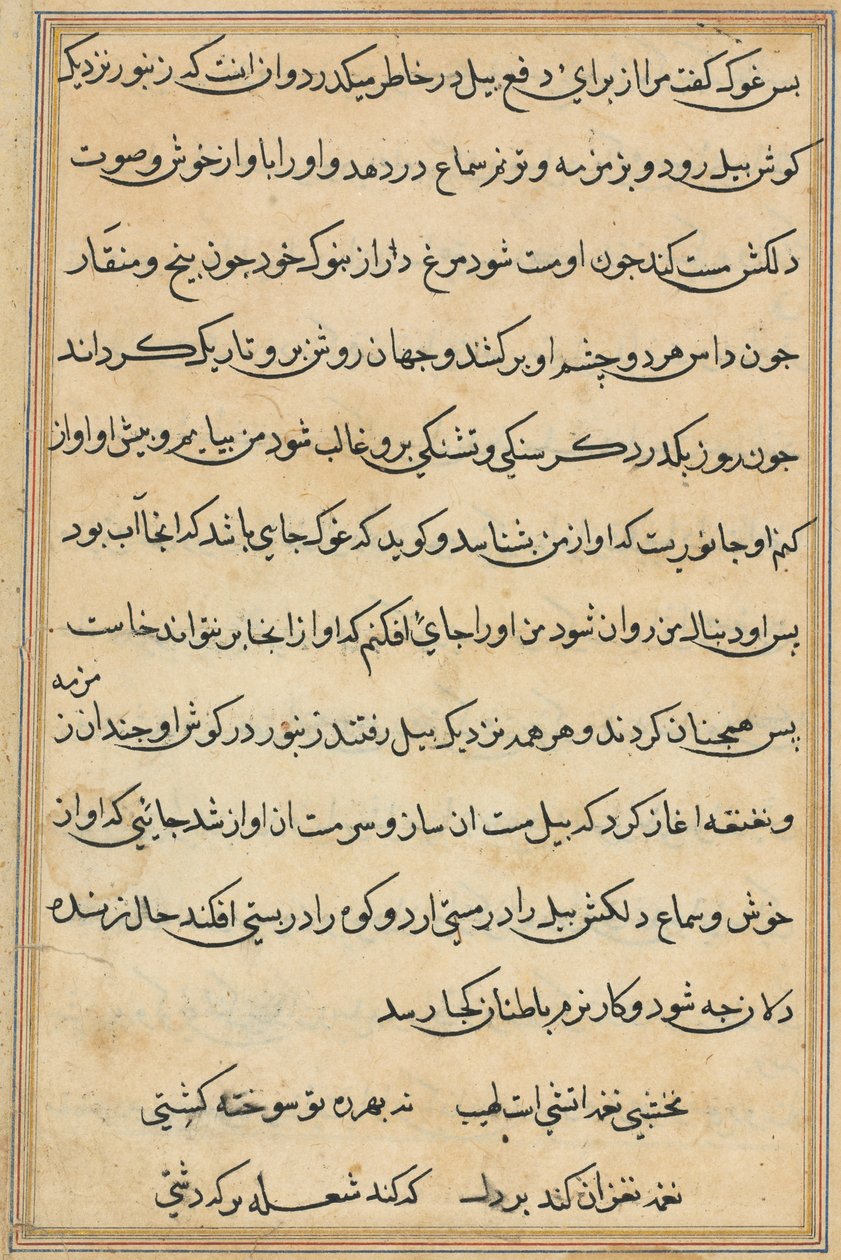 بس غوک کفت مرا از برای دفع بیل در خاطر میکدرد وان اینت که زنبور نزدیک
کوش بیل رود و بزمزمه و ترنم سماع در دهد و او را باواز خوش و صوت
دلکش مست کند جون او مست شود مرغ دراز بنوک خود جون بیخ و منقار
جون داس هر دو چشم او برکشند و جهان روشن برو تاریک کرداند
جون روز بکدرد کرسنکی و تشنکی برو غالب شود من بیایم و بیش او اواز
کنم او جانوریست که اواز من بشناسد و کوید که غوک جایی باشد که انجا آب بود
پس او دنبال من روان شود من او را جایی افکنم که او از انجا بر نتواند خاست
پس همجنان کردند و هر همه نزدیک بیل رفتند زنبور در کوش او جندان ز
مزمه
و نغنغه اغاز کرد که بیل مست ان ساز و سرمست ان اواز شد جائیی که اواز
خوش و سماع دلکش بیل را در مستی ارد و کوه را در بستی افکند حال زنده
دلان جه شود و کار نرم باطنان کجا رسد
نخشبی نغمه اتشی است لهیب نه بهرزه تو سوخته کشتی
نغمه نغز ان کند بر دل که کند شعله بر که دشتی